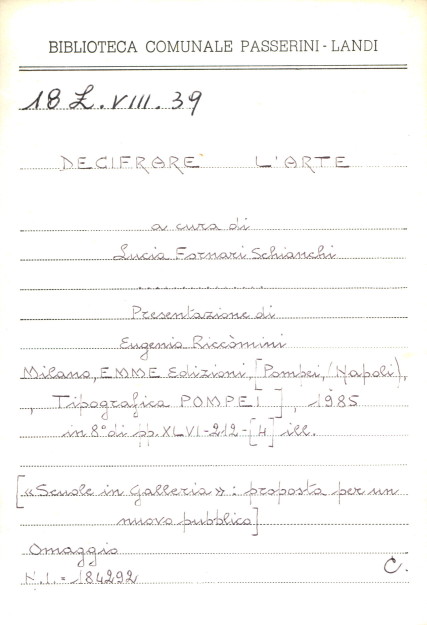 BIBLIOTECA COMUNALE PASSERINI - LANDI
18 L. VIII. 39
DECIFRARE L'ARTE
a cura di
Lucia Fornari Schianchi
..............
Presentazione di
Eugenio Riccòmini
Milano, EMME Edizioni, [Pompei, (Napoli),
, Tipografica POMPEI], 1985
in 8° di pp. XLVI-212-[4] ill.
[«Scuole in Galleria» : proposta per un
nuovo pubblico]
Omaggio
N.I. = 184292
C.